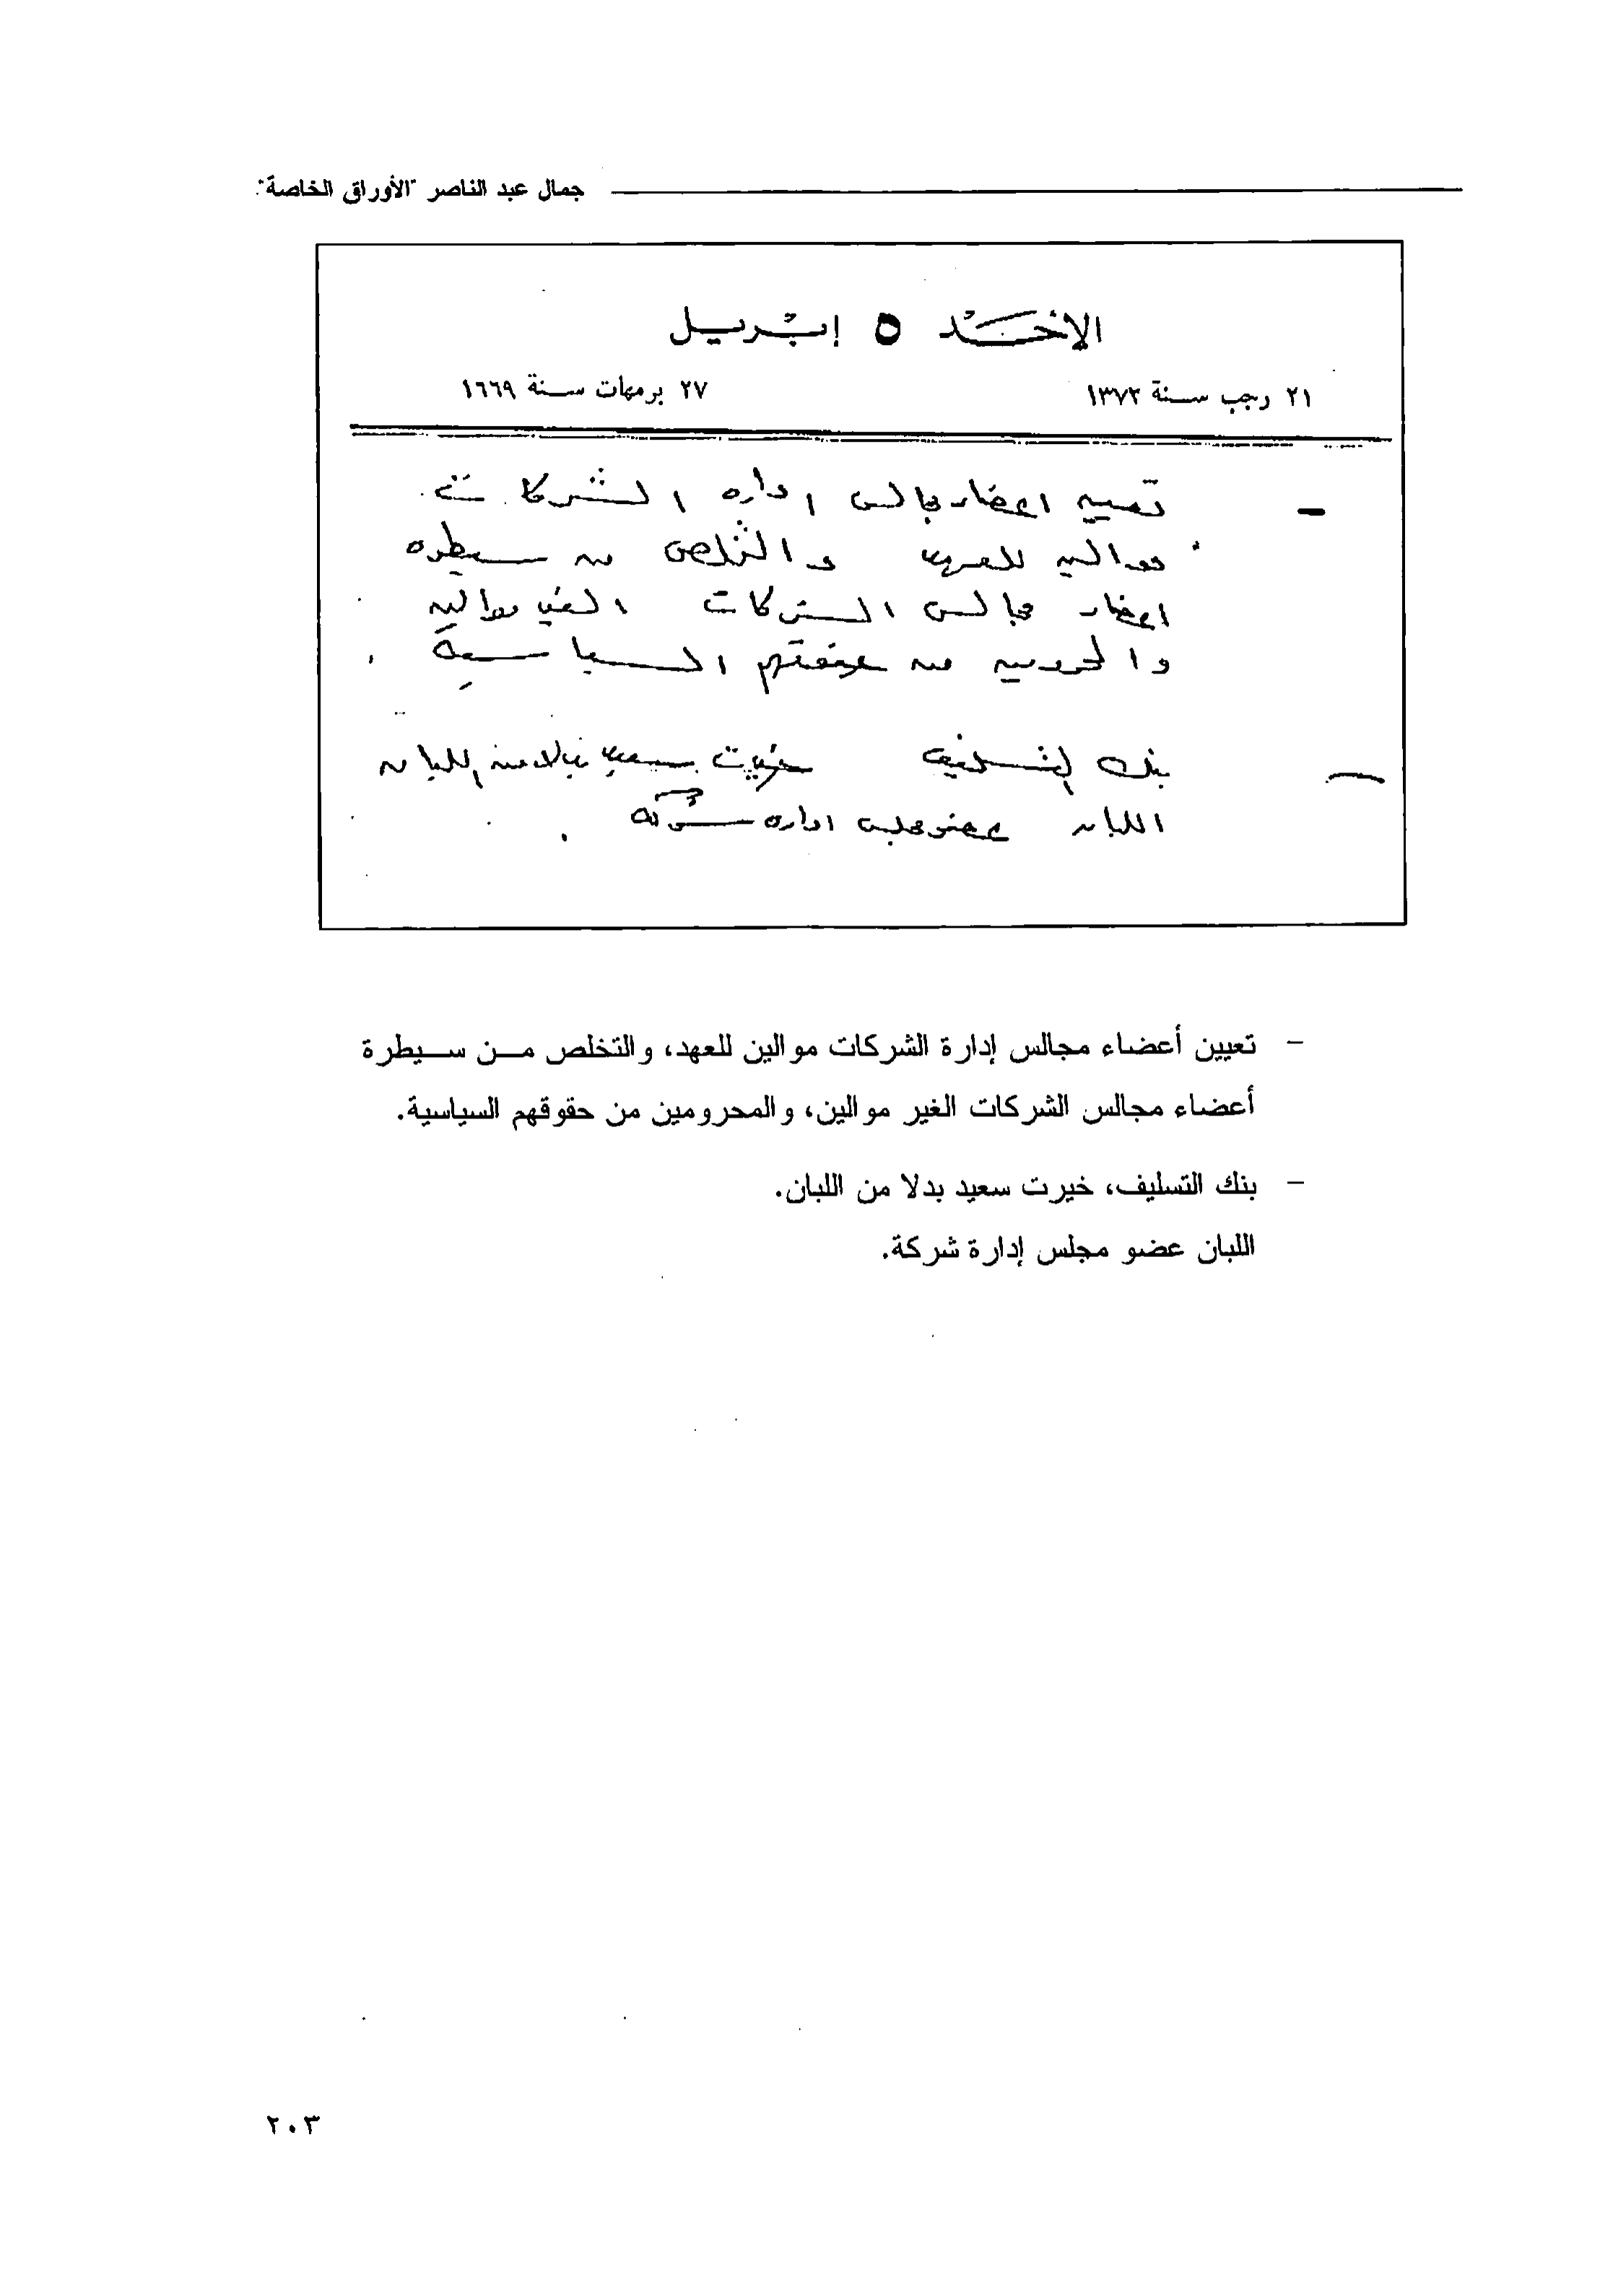 جمال عبد الناصر "الأوراق الخاصة"
الاحَد ٥ إبريل
٢١ رجب سنة ١٣٧٢
٢٧ برمهات سنة ١٦٦٩
- تعيين اعضاء مجالس اداره الشركات
موالين للعهد والتخلص من سيطره
اعضاء مجالس الشركات الغير موالين
والمحرومين من حقوقهم السياسية .
- بنك التسليف خيرت سعيد بدلا من اللبان
اللبان عضو مجلس اداره شركة .
- تعيين أعضاء مجالس إدارة الشركات موالين للعهد، والتخلص من سيطرة
أعضاء مجالس الشركات الغير موالين، والمحرومين من حقوقهم السياسية.
- بنك التسليف، خيرت سعيد بدلا من اللبان.
اللبان عضو مجلس إدارة شركة.
٢٠٣